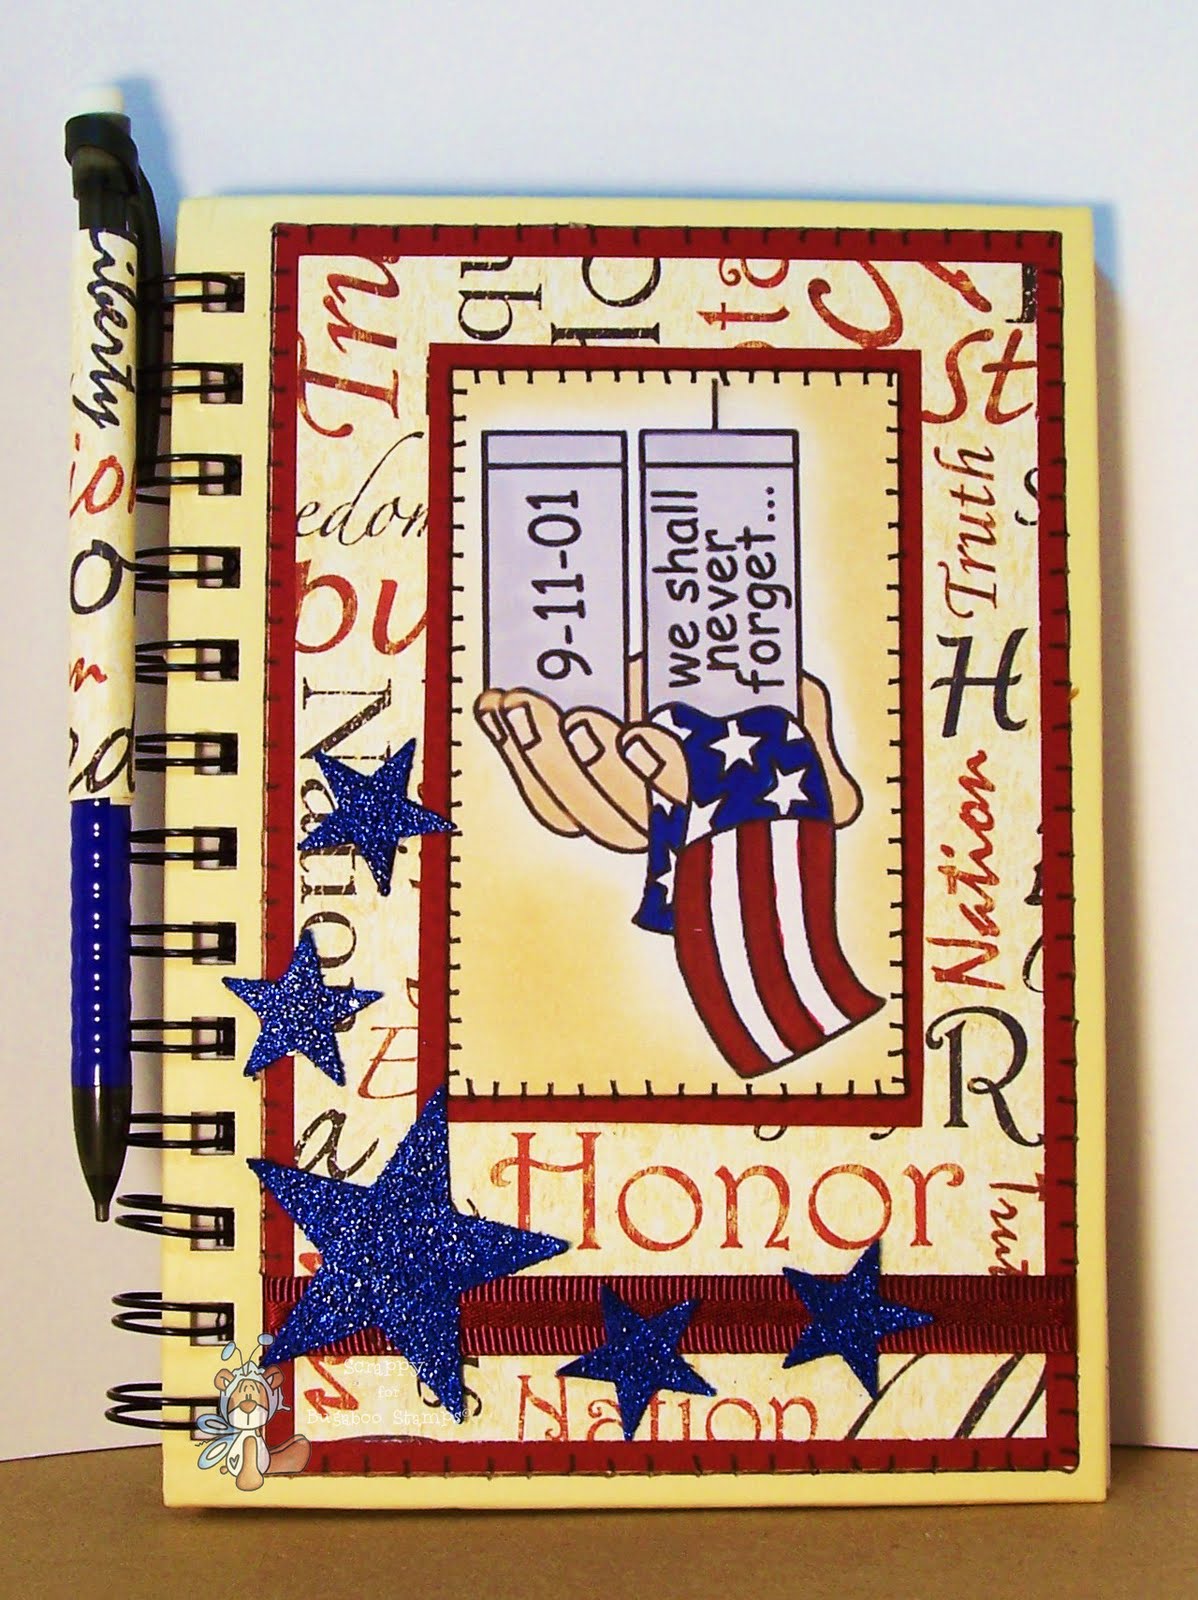 Liberty
9-11-01
we shall
never
forget...
edom
Nation
Truth
St
H
Nation
R
Honor
Nation
Scrappy
for
Bugaboo Stamps©